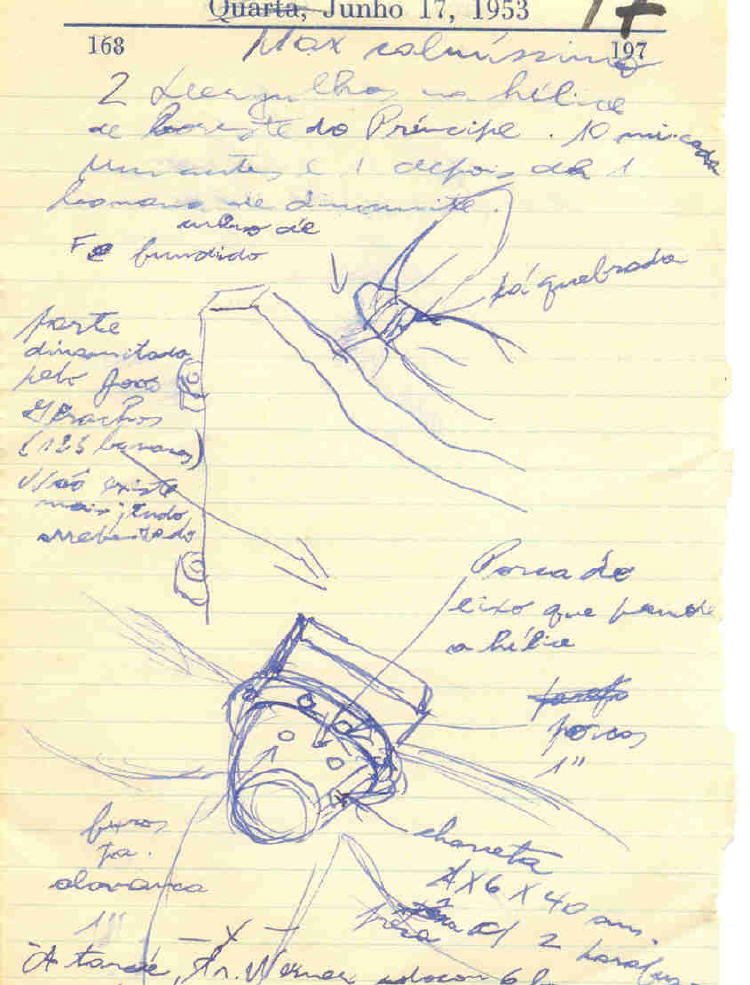 Quarta, Junho 17, 1953
17
168
197
Mar calmíssimo
2 mergulhos na hélice
de boreste do Príncipe. 10 min. cada
um antes e 1 depois de 1
banana de dinamite.
de
Fe fundido
pá quebrada
parte
dinamitada
pelo
(125 bananas)
Não existe
mais; tudo
arrebentado
Porca do
eixo que prende
a hélice
porcas
1"
buracos
pa.
alavanca
1"
chaveta
4 X 6 X 40 cm.
c/ 2
— x —
À tarde, Sr. Werner colocou 6